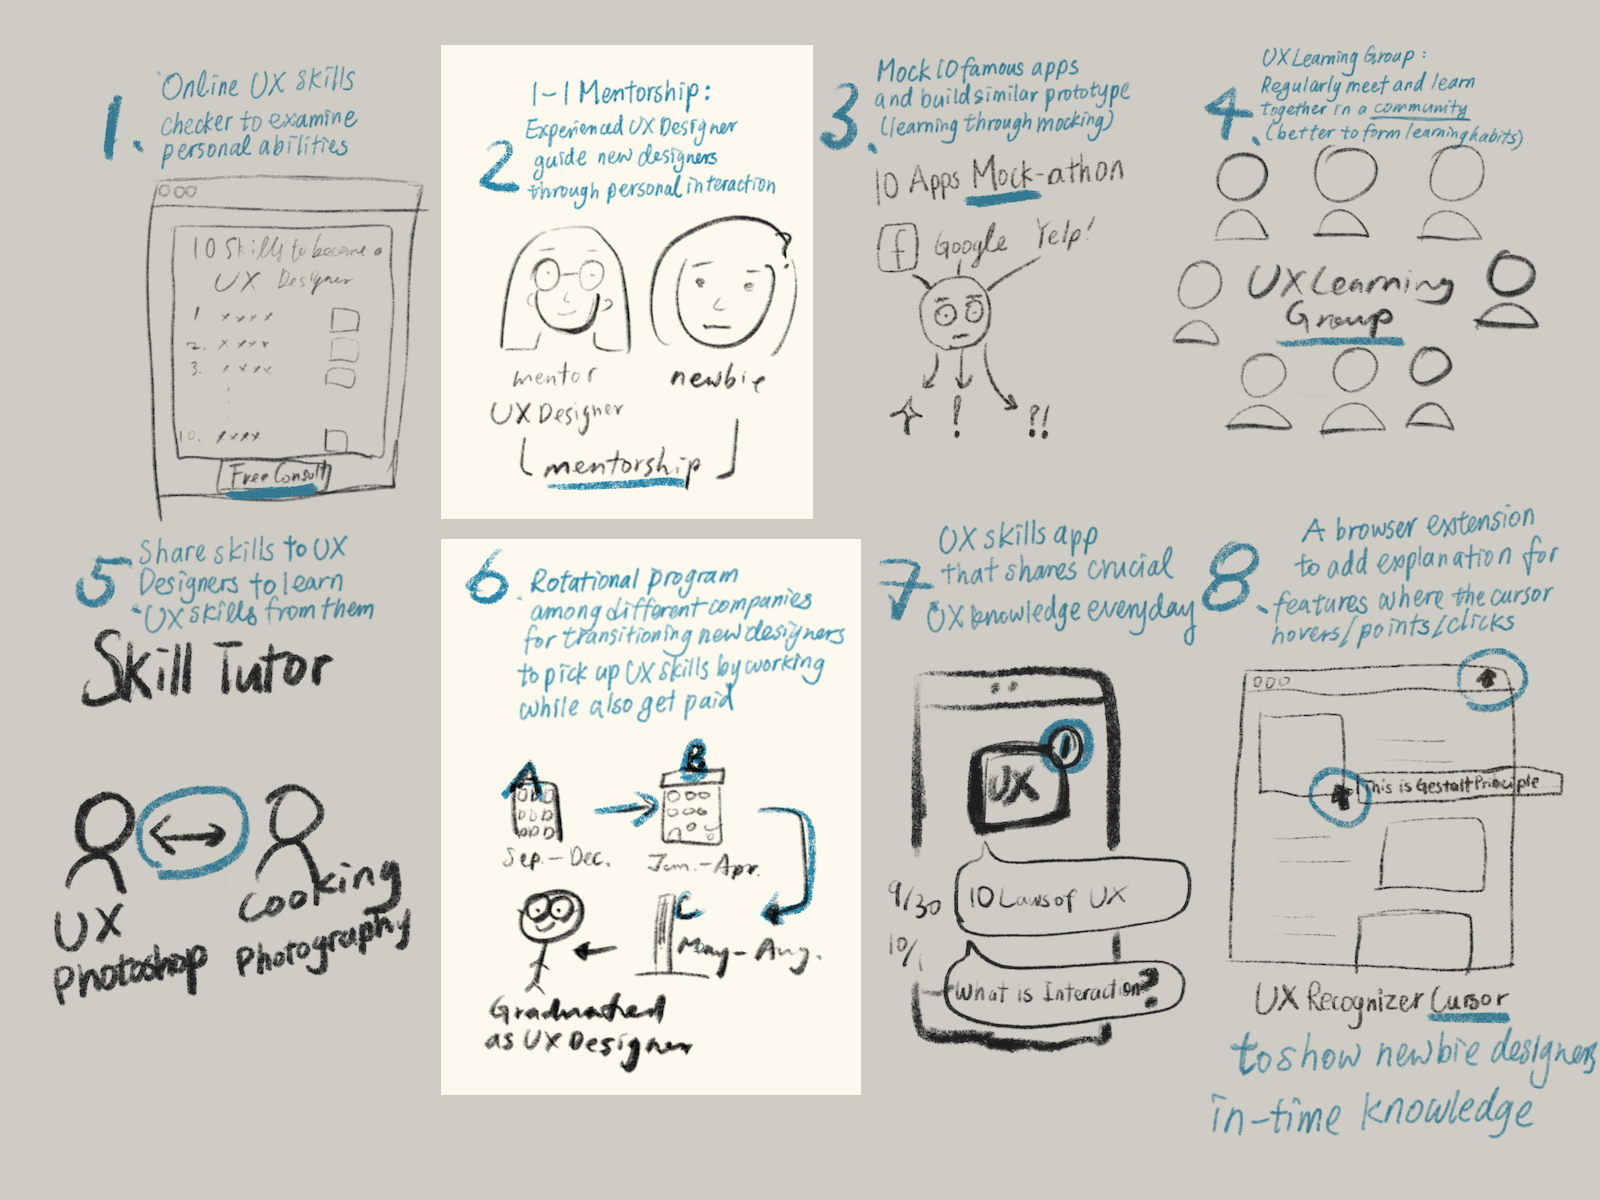 1.
Online UX skills
checker to examine
personal abilities
10 Skills to become a
UX Designer
1 xxxx
2. xxxx
3. xxxx
10. xxxx
Free Consult
2
1-1 Mentorship:
Experienced UX Designer
guide new designers
through personal interaction
?
mentor
UX Designer
newbie
mentorship
3.
Mock 10 famous apps
and build similar prototype
(learning through mocking)
10 Apps Mock-athon
f Google Yelp!
! ?!
4.
UX Learning Group:
Regularly meet and learn
together in a community
(better to form learning habits)
UX Learning
Group
5
Share skills to UX
Designers to learn
UX skills from them
Skill Tutor
UX
Photoshop
Cooking
Photography
6.
Rotational program
among different companies
for transitioning new designers
to pick up UX skills by working
while also get paid
A
B
Sep.-Dec.
Jan.-Apr.
C
May-Aug.
Graduated
as UX Designer
7
UX skills app
that shares crucial
UX knowledge everyday
UX
1
9/30
10 Laws of UX
10/1
What is Interaction?
8.
A browser extension
to add explanation for
features where the cursor
hovers/points/clicks
This is Gestalt Principle
UX Recognizer Cursor
to show newbie designers
in-time knowledge